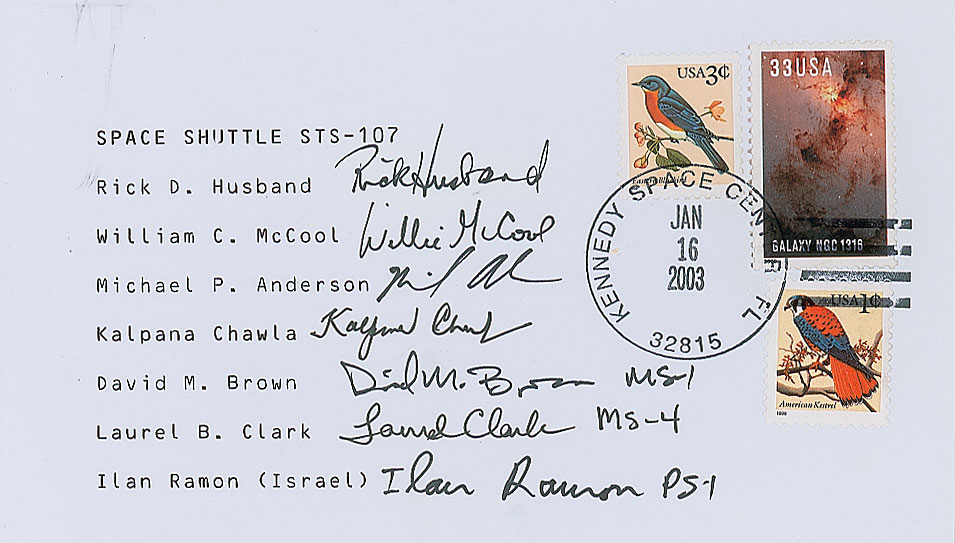 SPACE SHUTTLE STS-107
Rick D. Husband Rick Husband
William C. McCool Willie McCool
Michael P. Anderson
Kalpana Chawla Kalpana Chawla
David M. Brown David M. Brown MS-1
Laurel B. Clark Laurel Clark MS-4
Ilan Ramon (Israel) Ilan Ramon PS-1
USA3¢
Eastern Bluebird
33USA
GALAXY NGC 1316
KENNEDY SPACE CENTER FL
JAN
16
2003
32815
USA1¢
American Kestrel
1999